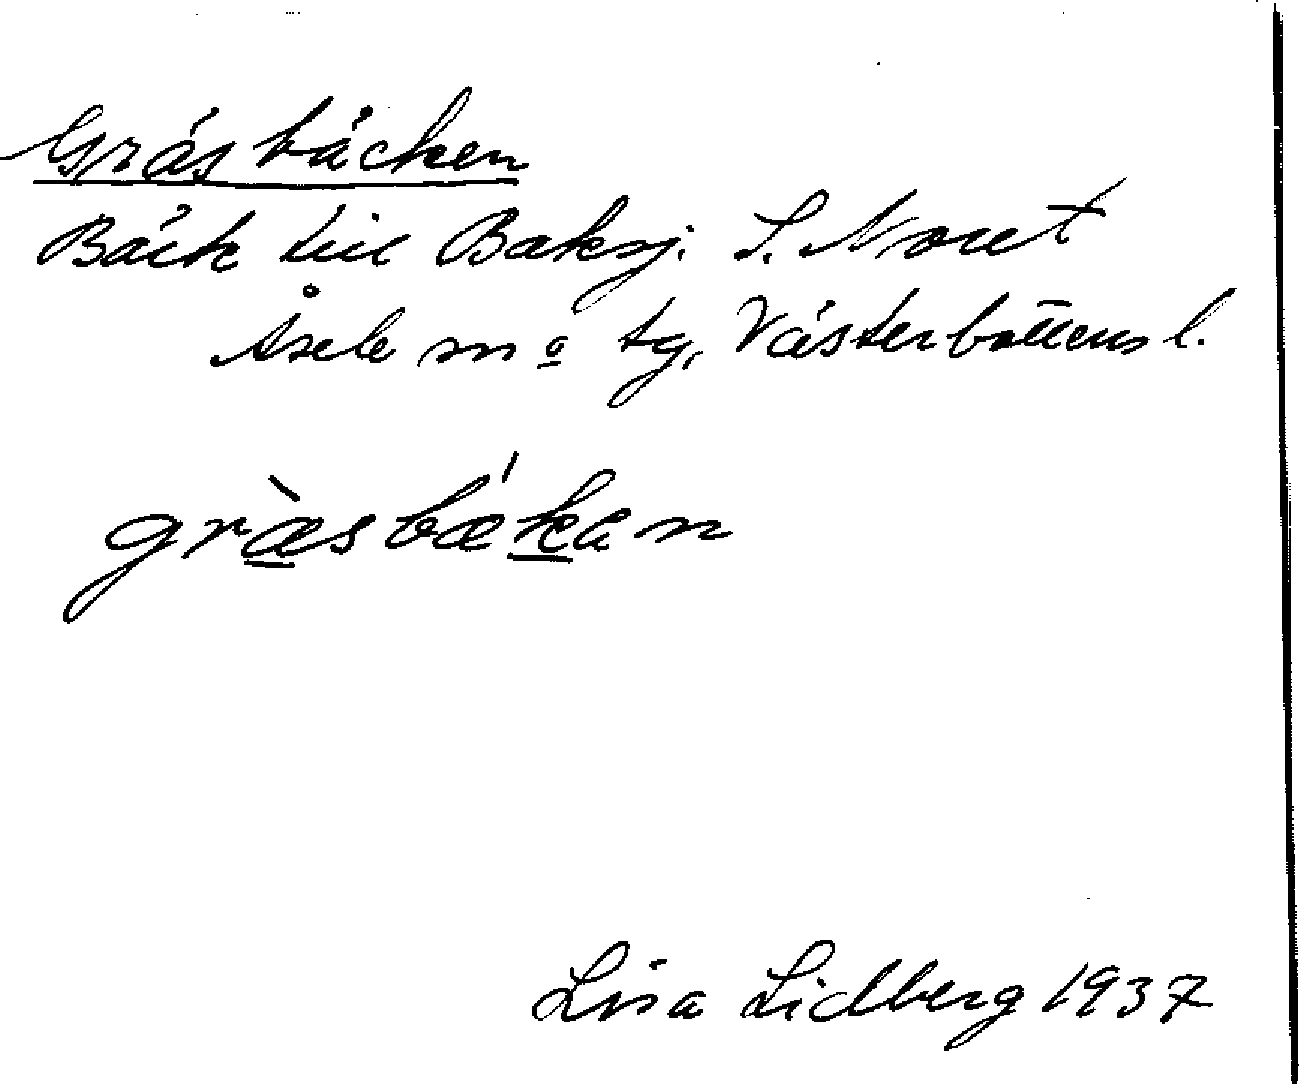 Gräsbäcken
Bäck till Baksj. S. Noret
Åsele sn o tg, Västerbottens l.
græ̀sbækan
Lisa Lidberg 1937